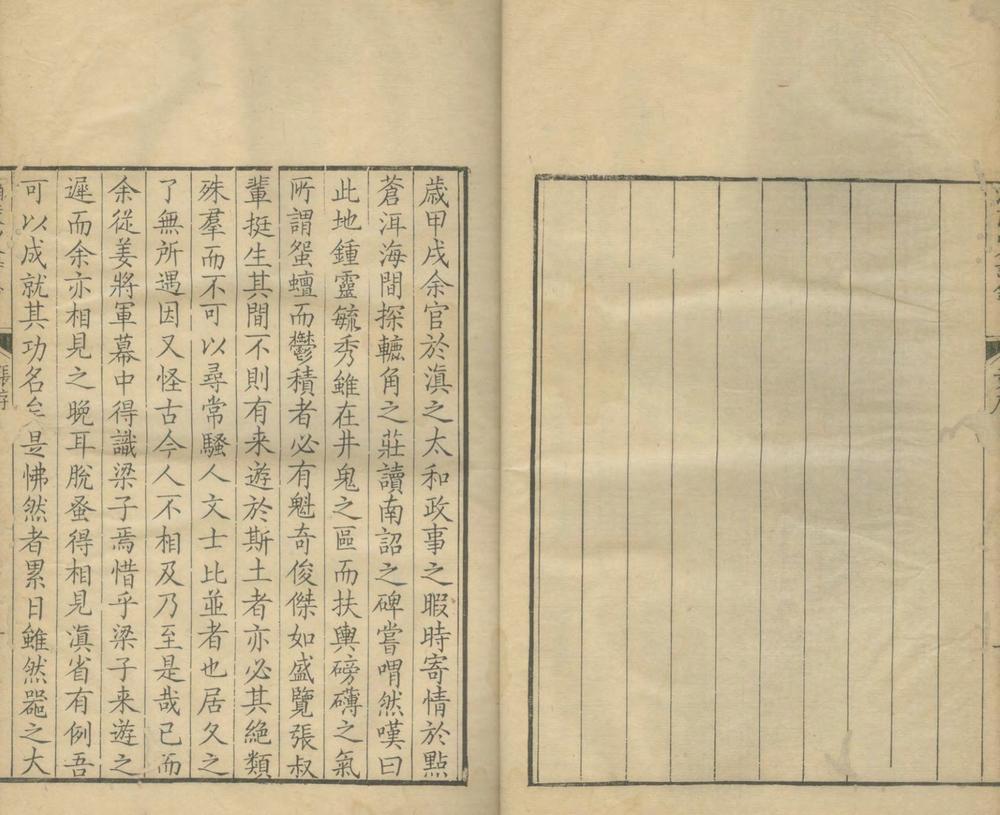 歳甲戌余官於滇之太和政事之暇時寄情於㸃
蒼洱海間探轆角之莊讀南詔之碑嘗喟然嘆曰
此地鍾靈毓秀雖在井鬼之區而扶輿磅礴之氣
所謂蜿蟺而鬱積者必有魁奇俊傑如盛覽張叔
輩挺生其間不則有来遊於斯土者亦必其絶類
殊羣而不可以尋常騷人文士比並者也居久之
了無所遇因又怪古今人不相及乃至是哉已而
余從姜將軍幕中得識梁子焉惜乎梁子来遊之
遲而余亦相見之晚耳脫蚤得相見滇省有例吾
可以成就其功名矣是怫然者累日雖然器之大
張序